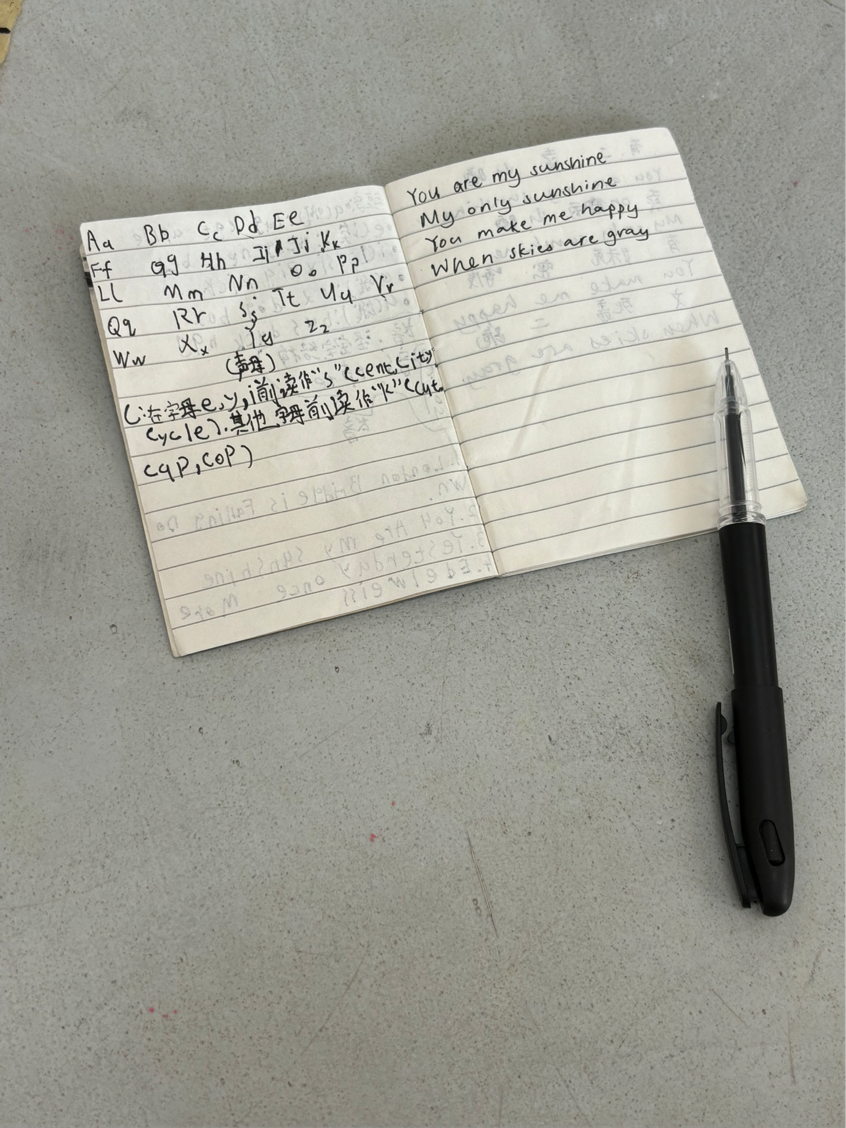 Aa Bb Cc Dd Ee
Ff Gg Hh Ii Jj Kk
Ll Mm Nn Oo Pp
Qq Rr Ss Tt Uu Vv
Ww Xx Yy Zz
(声母)
C:在字母e,y,i前,读作"s"(cent,city
cycle).其他字母前读作"k"(cut,
cap,cop)
You are my sunshine
My only sunshine
You make me happy
When skies are gray